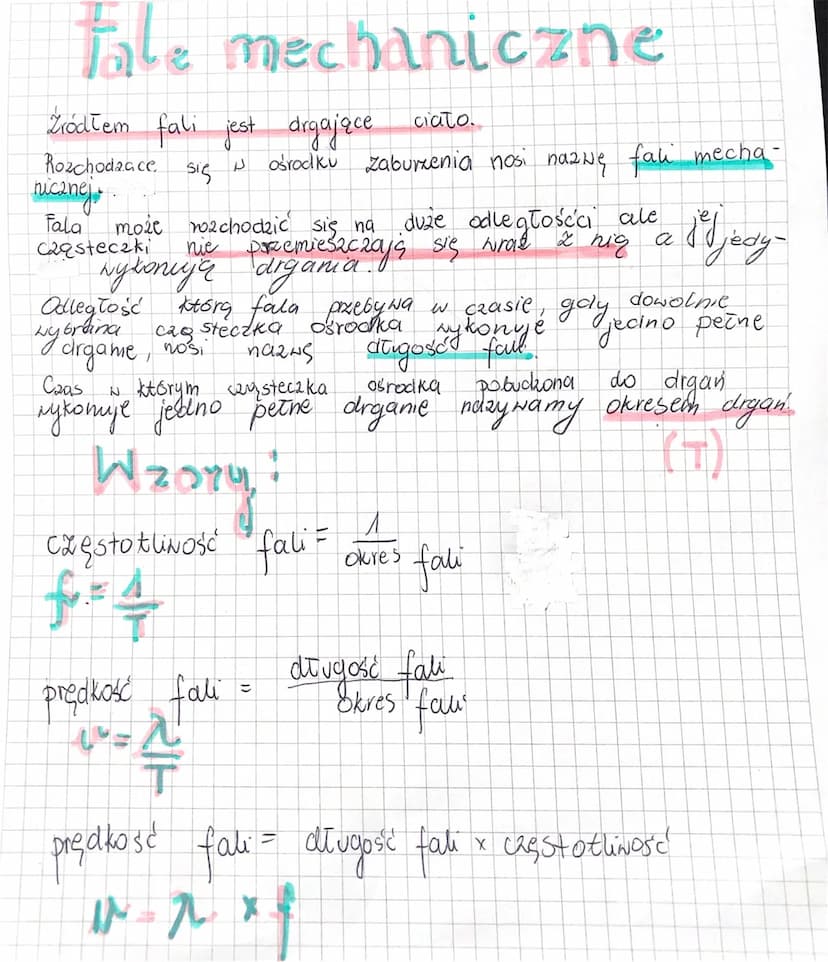 Fale mechaniczne
Źródłem fali jest drgające ciało.
Rozchodzące się w ośrodku zaburzenia nosi nazwę fali mecha-
nicznej.
Fala może rozchodzić się na duże odległośćci ale jej
cząsteczki nie przemieszczają się wraz z nią a jedy-
wykonują drgania.
Odległość którą fala przebywa w czasie, gdy dowolnie
wybrana cząsteczka ośrodka wykonuje jedno pełne
drganie, nosi nazwę długość fali.
Czas w którym cząsteczka ośrodka pobudzona do drgań
wykonuje jedno pełne drganie nazywamy okresem drgań.
(T)
Wzory:
częstotliwość fali = 1
okres fali
f = 1
T
prędkość fali = długość fali
okres fali
v = λ
T
prędkość fali = długość fali x częstotliwość
v = λ x f